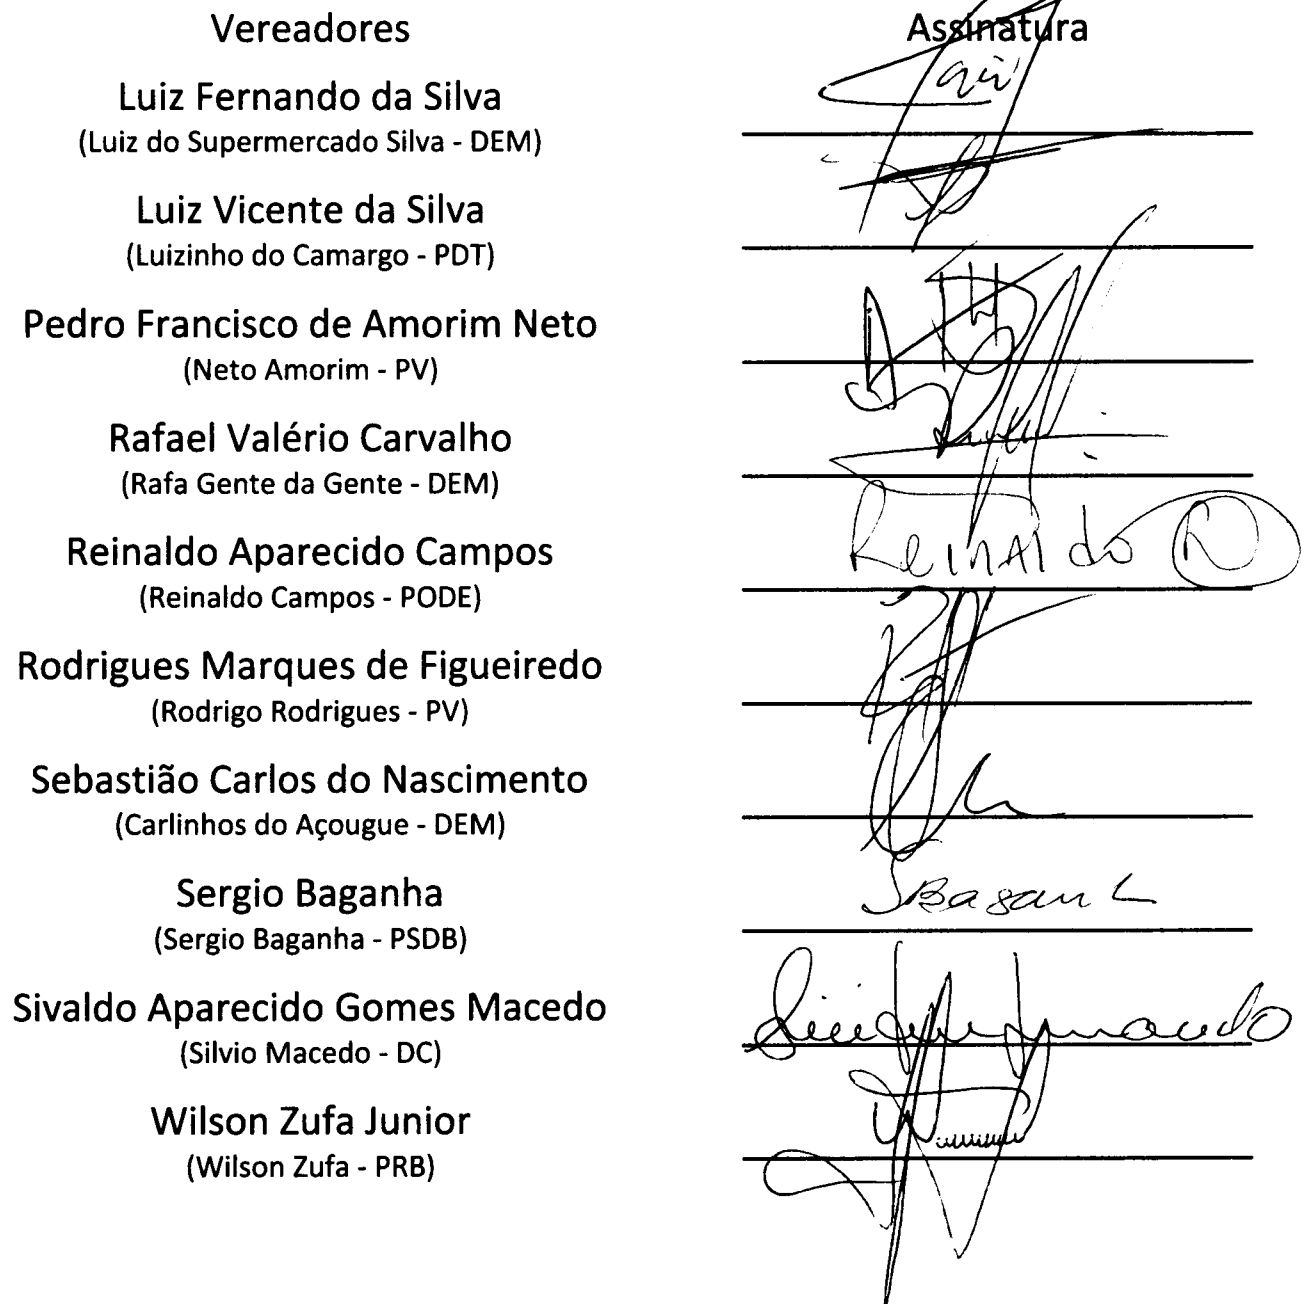 Vereadores Assinatura
Luiz Fernando da Silva
(Luiz do Supermercado Silva - DEM)
Luiz Vicente da Silva
(Luizinho do Camargo - PDT)
Pedro Francisco de Amorim Neto
(Neto Amorim - PV)
Rafael Valério Carvalho
(Rafa Gente da Gente - DEM)
Reinaldo Aparecido Campos Reinaldo
(Reinaldo Campos - PODE)
Rodrigues Marques de Figueiredo
(Rodrigo Rodrigues - PV)
Sebastião Carlos do Nascimento
(Carlinhos do Açougue - DEM)
Sergio Baganha
(Sergio Baganha - PSDB)
Sivaldo Aparecido Gomes Macedo
(Silvio Macedo - DC)
Wilson Zufa Junior
(Wilson Zufa - PRB)